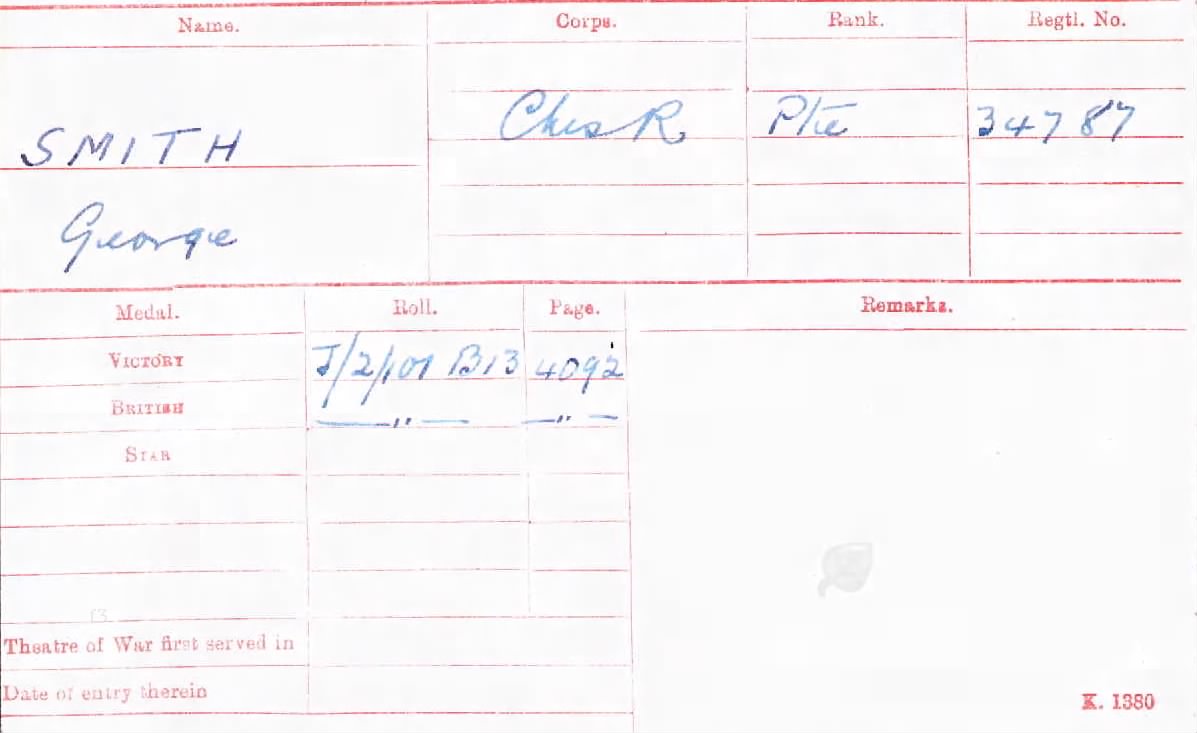 Name. Corps. Rank. Regtl. No.
SMITH Ches R Pte 34787
George
Medal. Roll. Page. Remarks.
VICTORY J/2/101 B13 4092
BRITISH —,,— —,,—
STAR
13
Theatre of War first served in
Date of entry therein
K. 1380